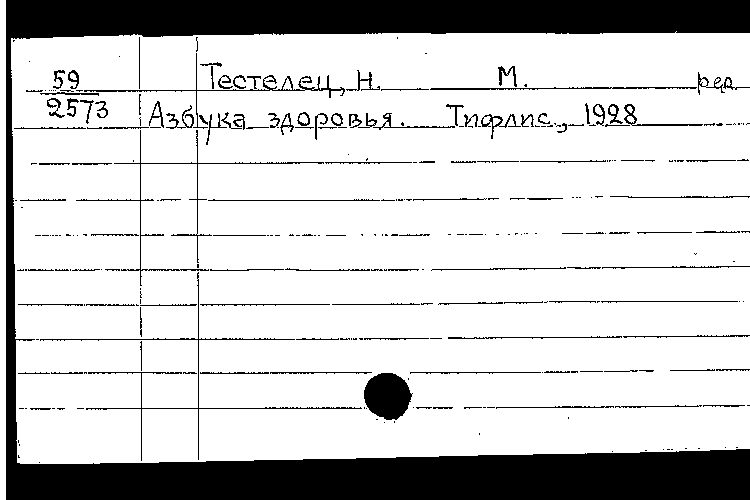 59 Тестелец, Н. М. ред.
2573 Азбука здоровья. Тифлис, 1928